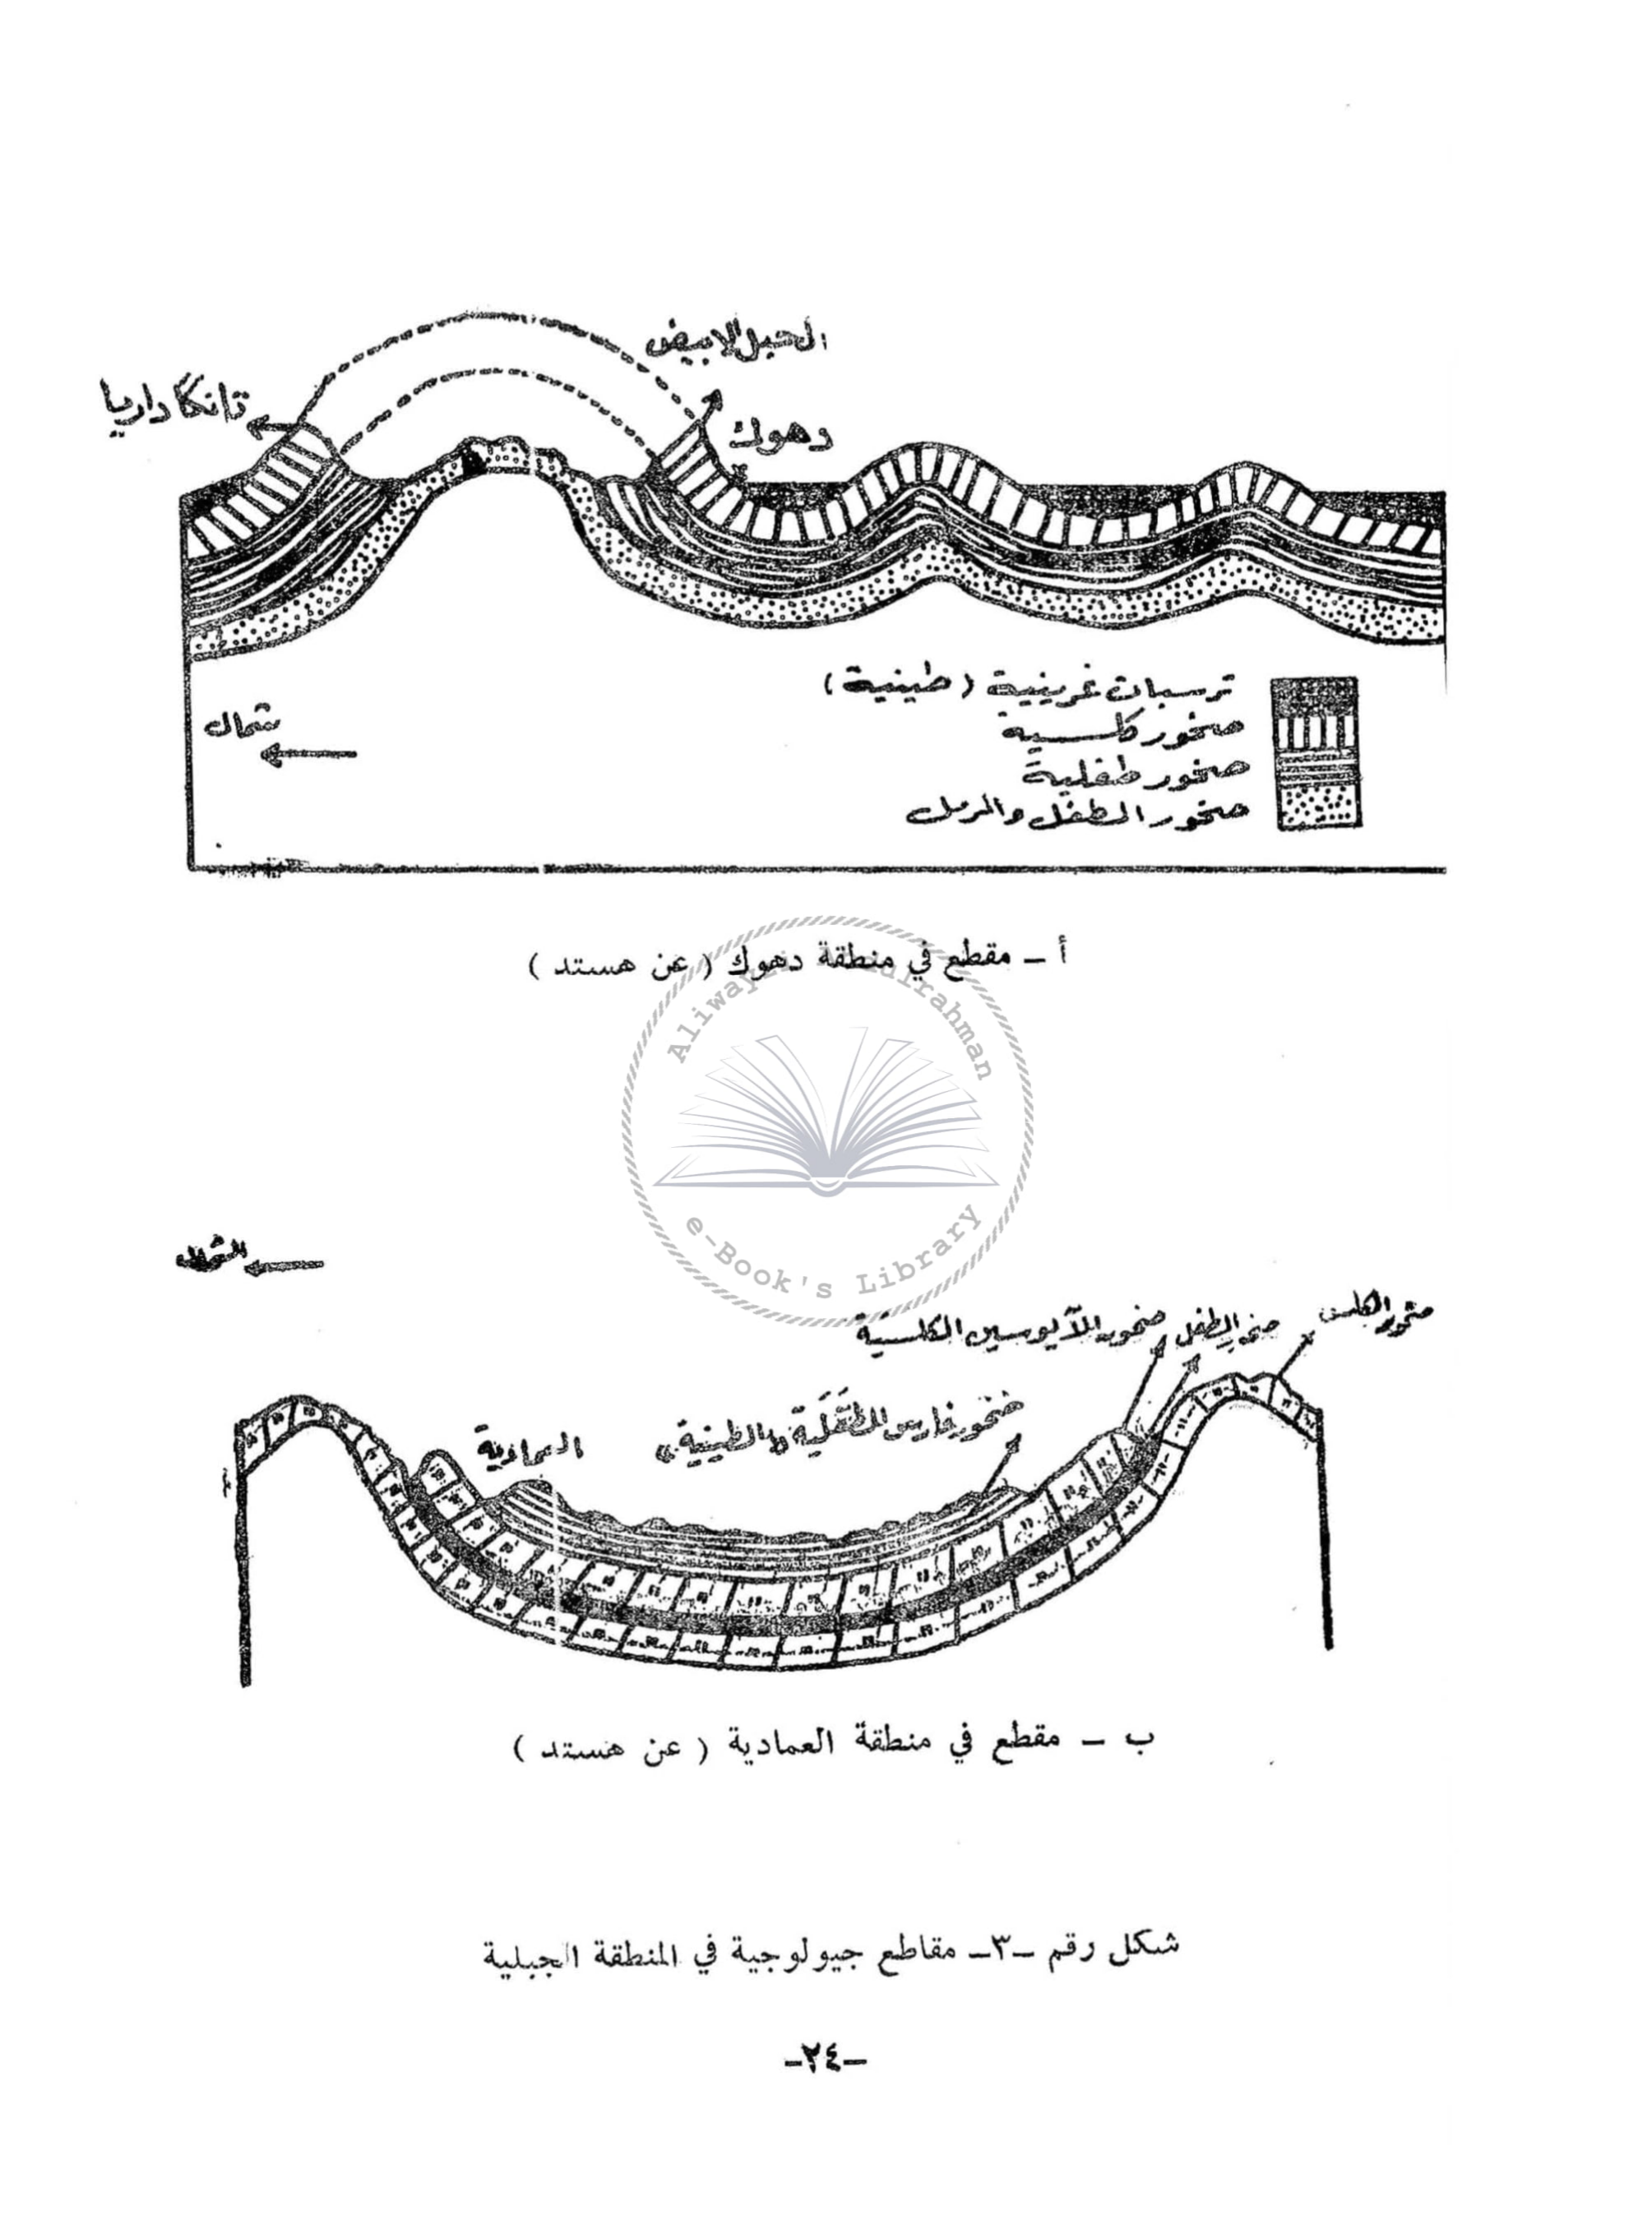 الجبل الابيض
تانكا داريا
دهوك
ترسبات غرينية (طينية)
صخور كلسية
صخور طفلية
صخور الطفل والرمل
شمال
أ ـ مقطع في منطقة دهوك ( عن هستد )
Aliwayzi Abdulrahman
e-Book's Library
الشمال
صخور الكلس
صخر الطفل
صخور الآيوسين الكلسية
صخور فارس الطفلية والطينية
العمادية
ب ـ مقطع في منطقة العمادية ( عن هستد )
شكل رقم ـ٣ـ مقاطع جيولوجية في المنطقة الجبلية
ـ٢٤ـ